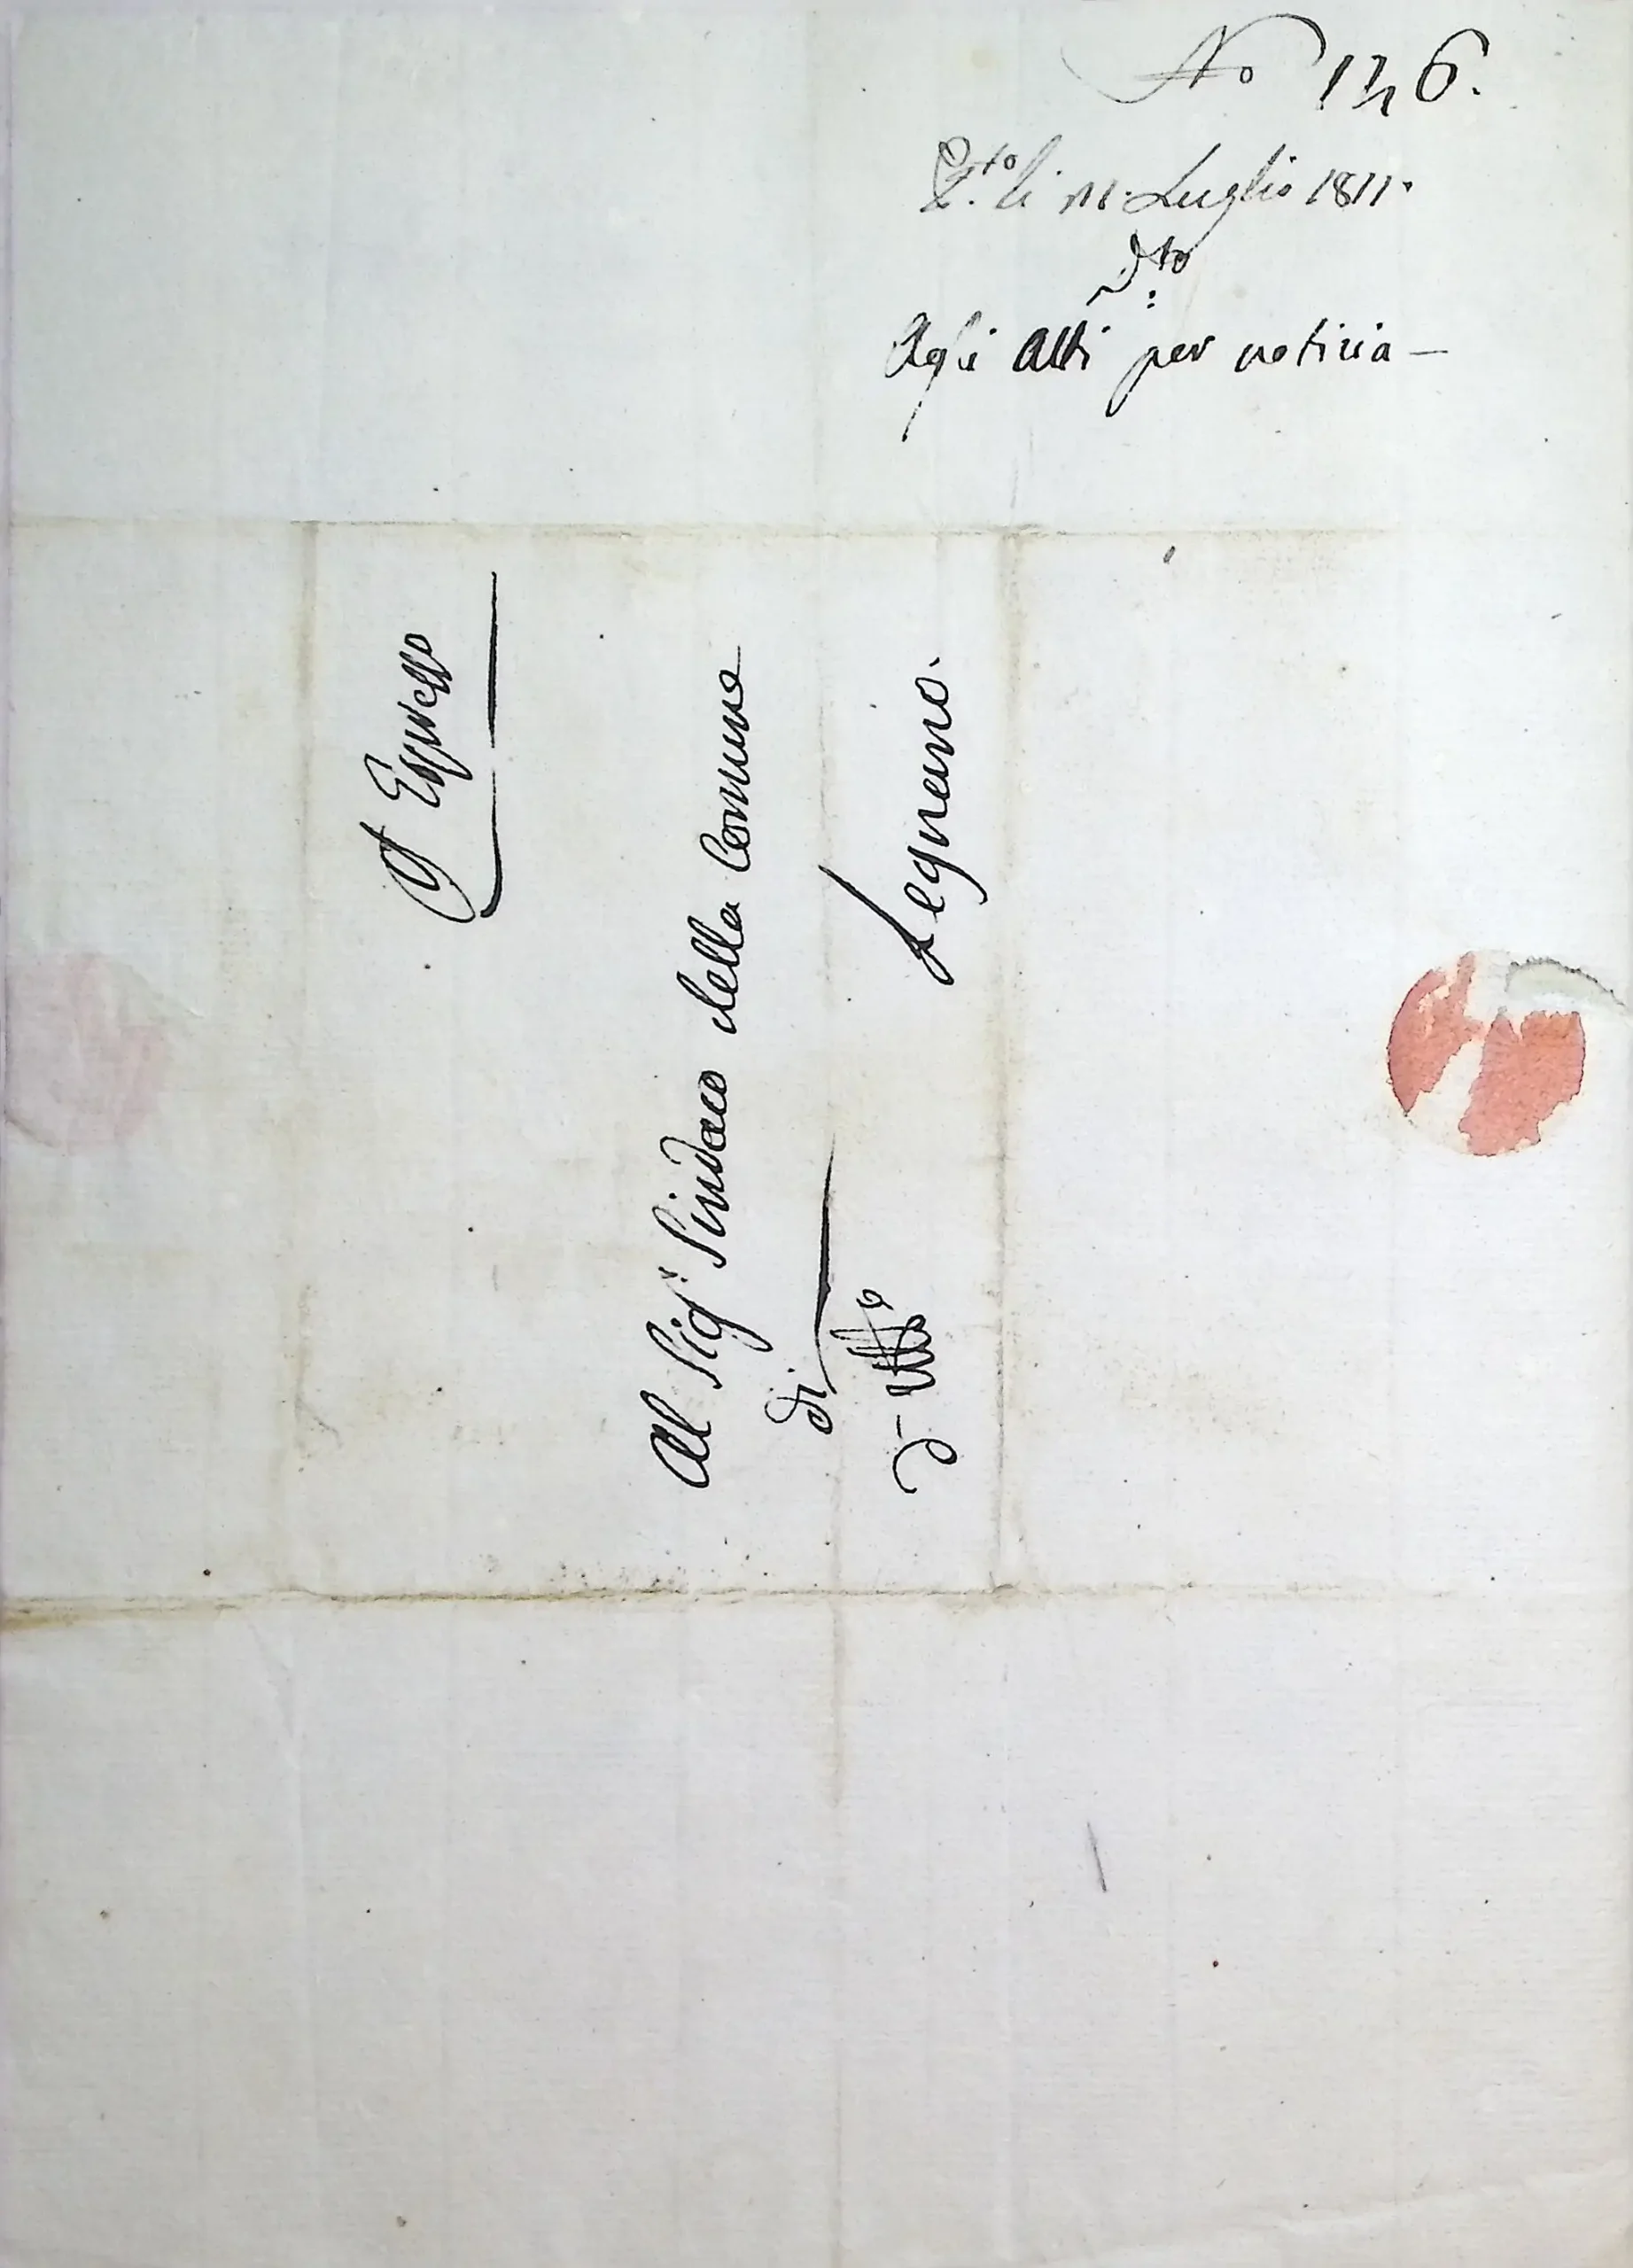 No 146.
P.to li 11. Luglio 1811.
d.to
Agli Atti per notizia —
P Espresso
Al Sig.r Sindaco della Comune
di
Legnano.
d'Uff.o